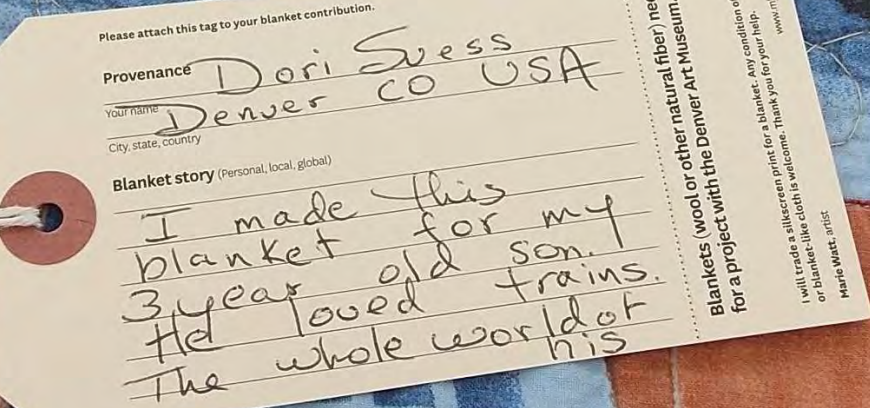 Please attach this tag to your blanket contribution.
Provenance Dori Suess
Your name
Denver CO USA
City, state, country
Blanket story (Personal, local, global)
I made this
blanket for my
3 year old son.
He loved trains.
The whole world of
his
Blankets (wool or other natural fiber) nee
for a project with the Denver Art Museum.
I will trade a silkscreen print for a blanket. Any condition o
or blanket-like cloth is welcome. Thank you for your help.
Marie Watt, artist
www.m